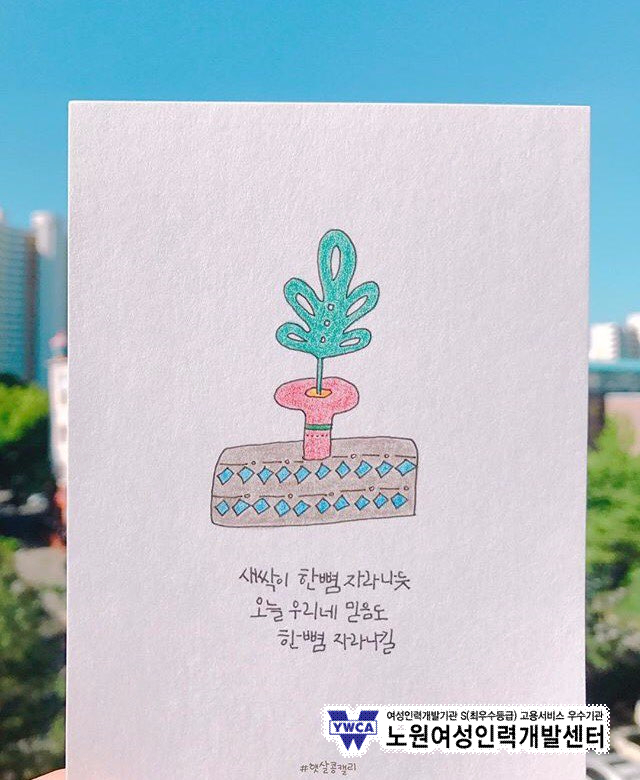 새싹이 한뼘 자라나듯
오늘 우리네 믿음도
한뼘 자라나길
#햇살콩캘리
YWCA
여성인력개발기관 S(최우수등급) 고용서비스 우수기관
노원여성인력개발센터